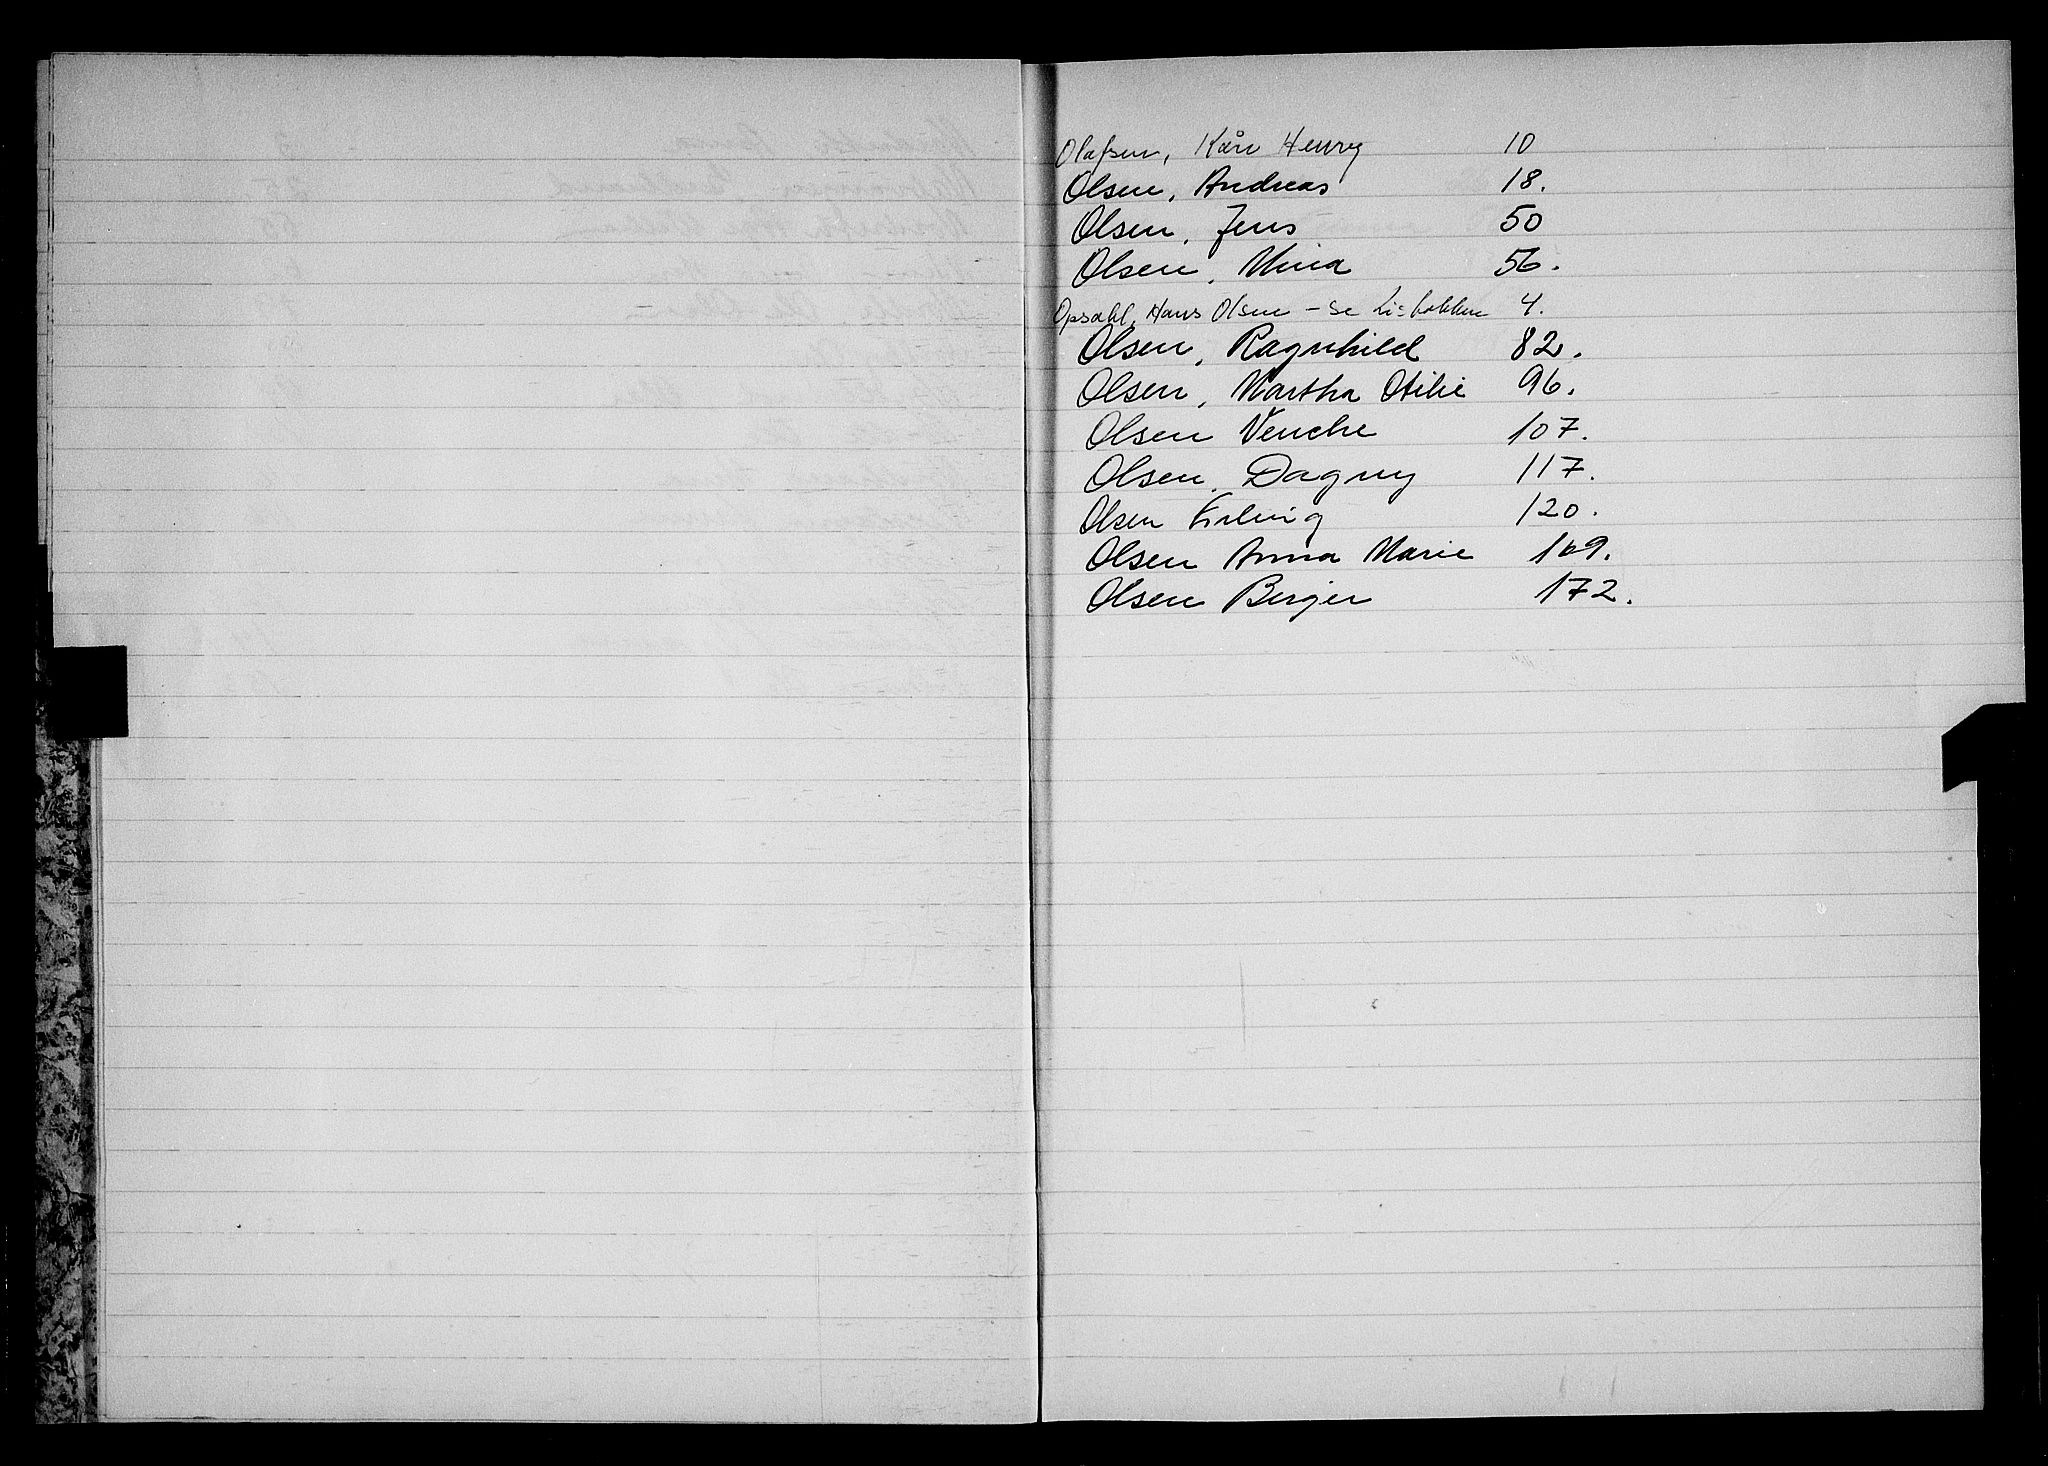 Olafsen, Kåre Henry 10
Olsen, Andreas 18.
Olsen, Jens 50
Olsen, Mina 56.
Opsahl, Hans Olsen – se Liebakken 4.
Olsen, Ragnhild 82.
Olsen, Martha Otilie 96.
Olsen Venche 107.
Olsen, Dagny 117.
Olsen Erling 120.
Olsen Anna Marie 169.
Olsen Berger 172.